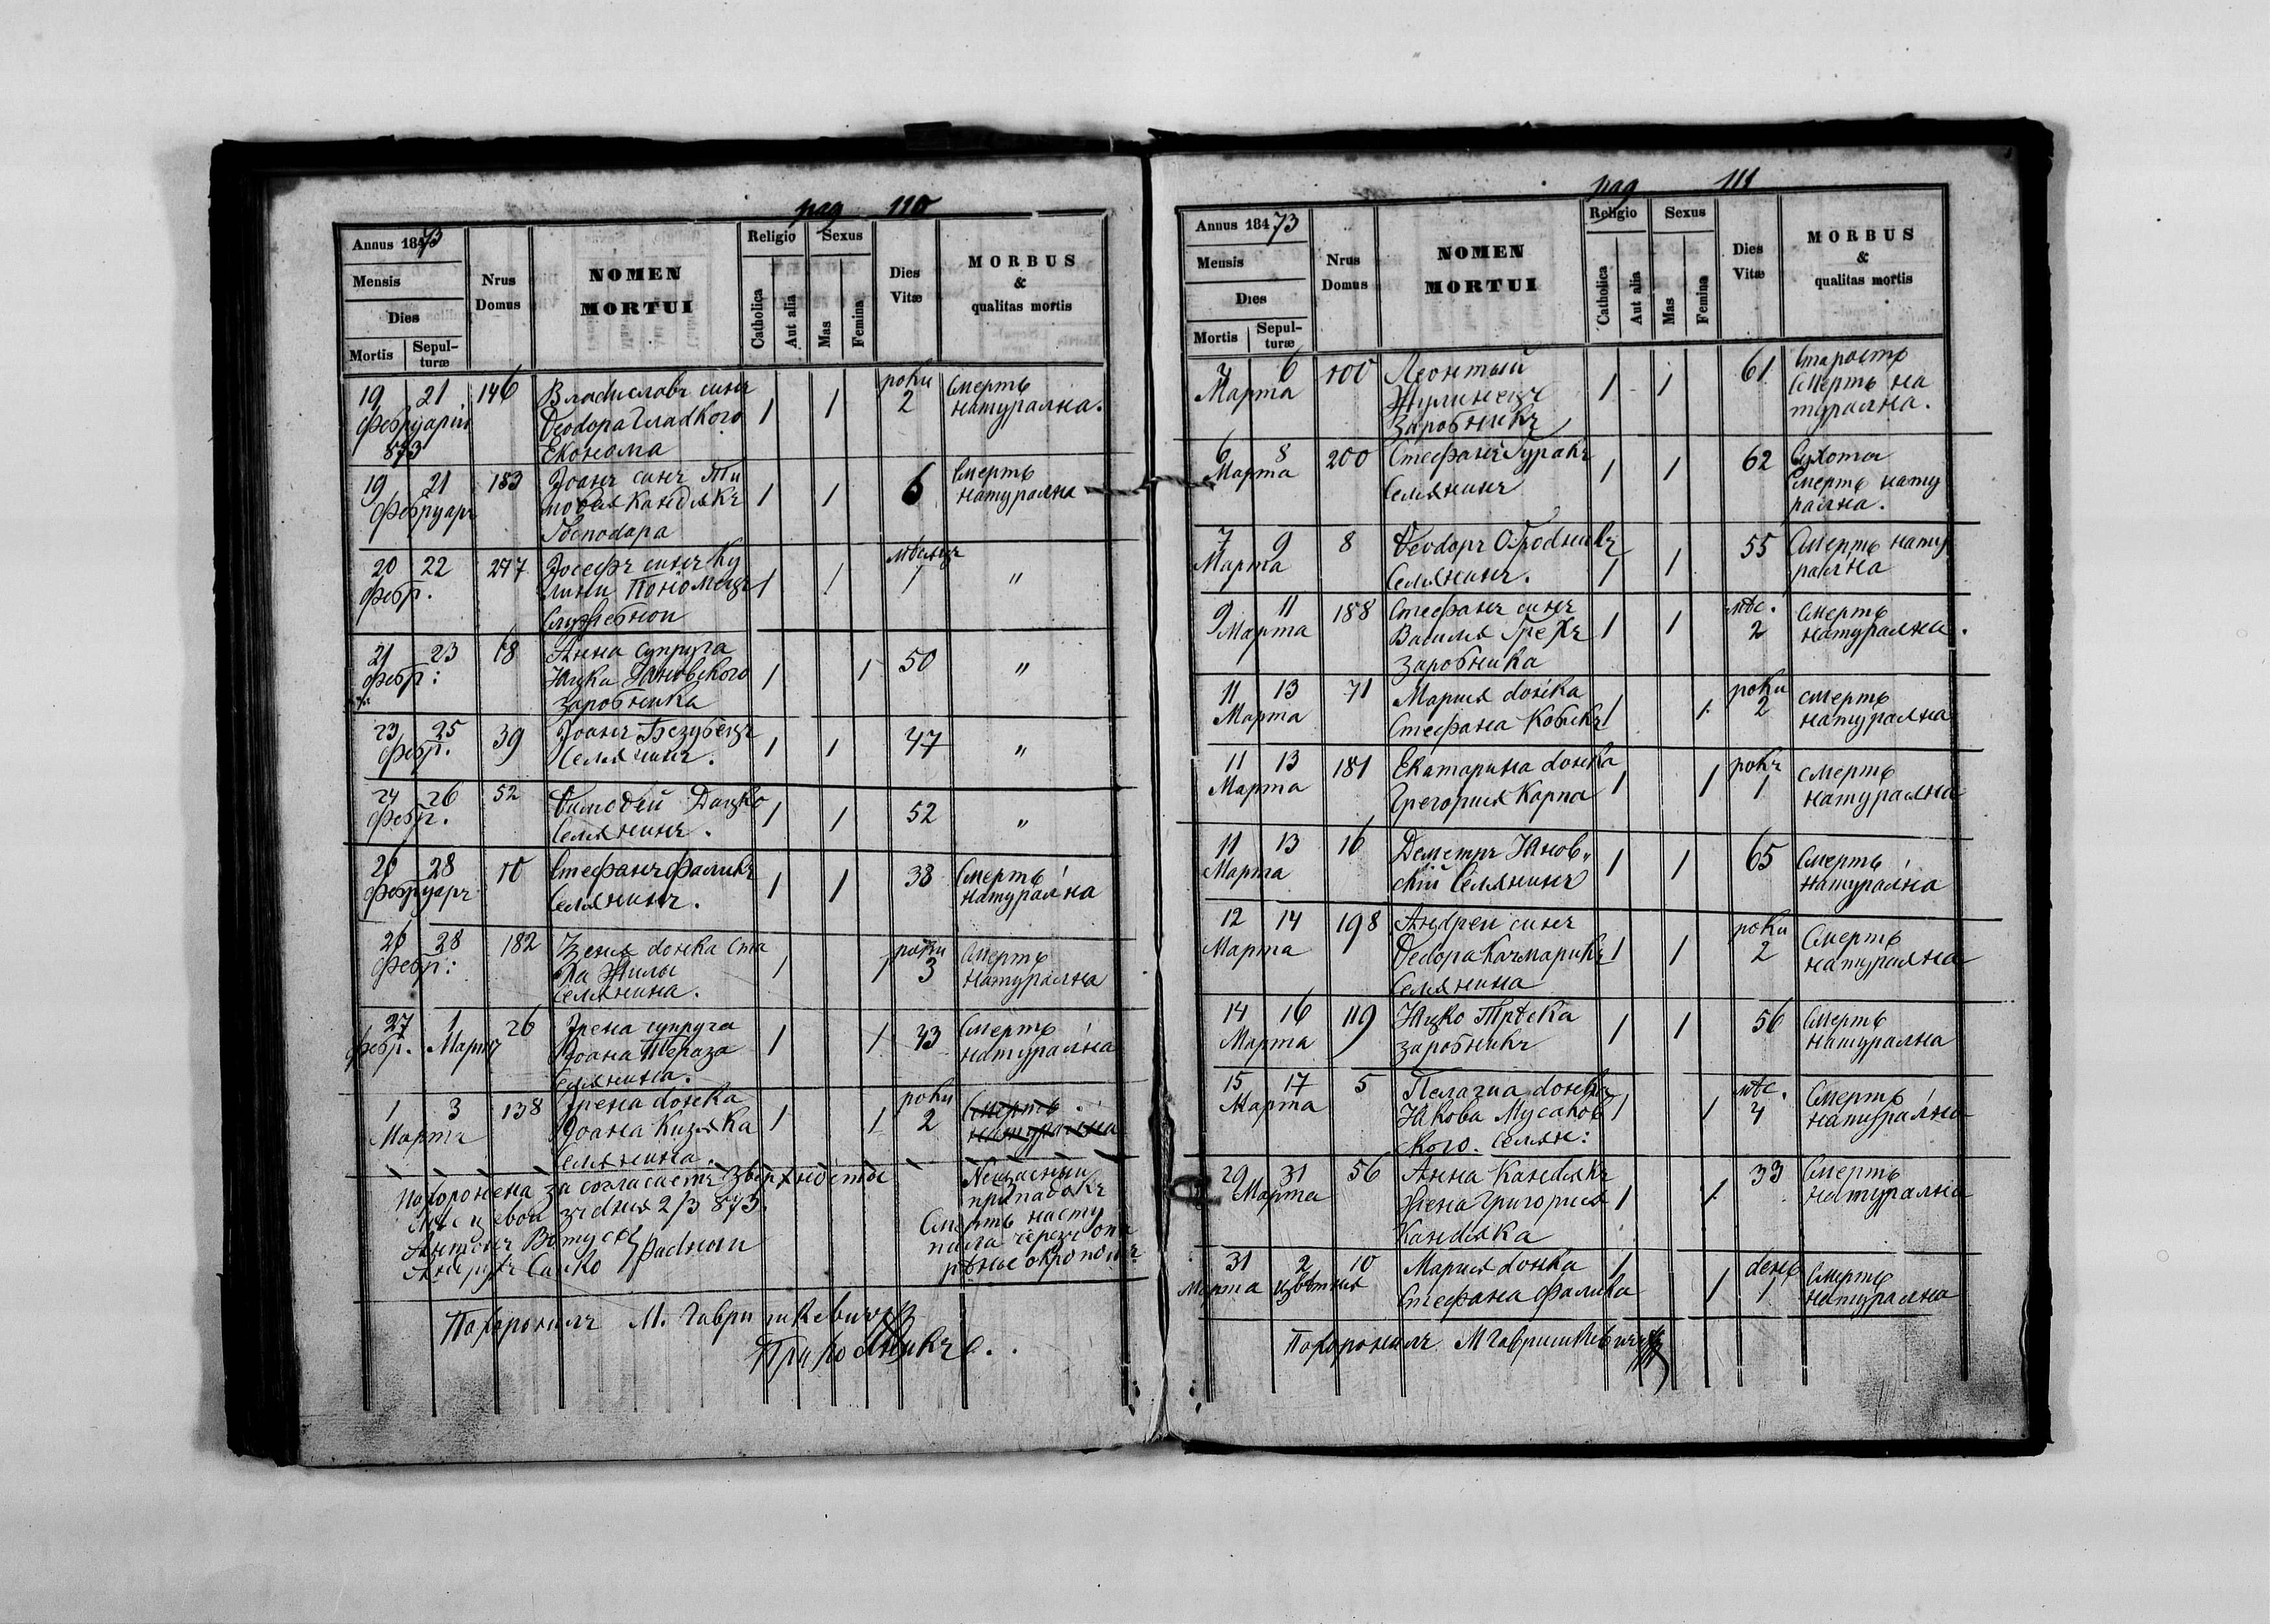 pag 110
Annus 1873
Mensis
Dies
Mortis
Sepulturæ
Nrus Domus
NOMEN MORTUI
Religio
Catholica
Aut alia
Sexus
Mas
Femina
Dies Vitæ
MORBUS & qualitas mortis
19 21 146 Владиславъ синъ 1 1 роки 2 Смерть
Фебруарій Ѳеодора Гладкого натурална.
873 Економа
19 21 183 Іоанъ синъ Ти 1 1 6 Смерть
Фебруаръ моѳея Кандякъ натурална
Господара
20 22 277 Іосефъ синъ Ку 1 1 мѣсяцъ 1 "
Фебр. лини
21 23 18 Анна супруга 1 1 50 "
Фебр: Яцка Яновского
заробника
23 25 39 Іоанъ Беззубецъ 1 1 47 "
Фебр. Селянинъ.
24 26 52 Тимоѳей Дацко 1 1 52 "
Фебр. Селянинъ.
26 28 10 Стефанъ Фаликъ 1 1 38 Смерть
Фебруаръ Селянинъ. натурална
26 28 182 донька 1 1 роки 3 Смерть
Фебр: натурална
Селянина.
27 1 26 Ірена супруга 1 1 43 Смерть
Фебр. Марта Іоана натурална
Селянина.
1 3 138 Ірена донька 1 1 роки 2 Смерть
Мартъ Іоана Кизяка натурална
Селянина.
Похоронена за Нещасный
дня 2/3 873. припадокъ
Антонъ Смерть насту
Санко радныи пила черезъ опа
Похоронилъ М. Гавришкевичъ
Приходникъ.
pag 111
Annus 1873
Mensis
Dies
Mortis
Sepulturæ
Nrus Domus
NOMEN MORTUI
Religio
Catholica
Aut alia
Sexus
Mas
Femina
Dies Vitæ
MORBUS & qualitas mortis
6 100 Леонтый 1 1 61 Старость
Марта Смерть на
заробникъ турална.
6 8 200 Стефанъ Гуракъ 1 1 62 Сухоты
Марта Селянинъ Смерть нату
рална.
7 9 8 Ѳеодоръ 1 1 55 Смерть нату
Марта Селянинъ. рална
9 11 188 Стефанъ синъ 1 1 мѣс. 2 Смерть
Марта Василя натурална.
заробника
11 13 71 Мария донька 1 1 роки 2 смерть
Марта Стефана натурална
11 13 181 Екатарина донька 1 1 рокъ 1 смерть
Марта Григория Карпа натурална
11 13 16 Деметръ Янов„ 1 1 65 Смерть
Марта скій Селянинъ натурална
12 14 198 Андреи синъ 1 1 роки 2 Смерть
Марта Ѳедора Качмарикъ натурална
Селянина
14 16 119 Яцко 1 1 56 Смерть
Марта заробникъ натурална
15 17 5 Пелагиа донька 1 1 мѣс. 4 Смерть
Марта Якова Мусаков натурална
ского. Селян:
29 31 56 Анна Кандякъ 1 1 33 Смерть
Марта Жена Григория натурална
Кандяка
31 2 10 Мария донька 1 1 день 1 Смерть
Марта Цвѣтня Стефана Фалика натурална
Похоронилъ М Гавришкевичъ